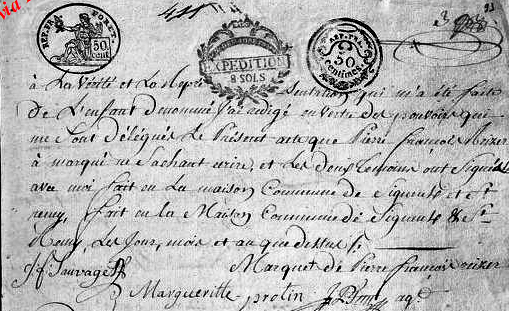 via
REP. FRA. POST.
50
cent.
EXPEDITION
8 SOLS
50
Centimes
à La Vérité et La Repré sentation qui m'a été faite
De L'enfant denommé J'ai redigé en vertu des pouvoirs qui
me sont délégués Le Présent acte que Pierre françois
à marqué ne Sachant ecrire, et Les deux temoins ont Signés
avec moi fait en La maison Commune de et St
remy, fait en la Maison Commune de & St
Remy, Les Jour, mois et an que dessus /.
J. f Sauvage Marque de Pierre françois
Margueritte protin agt